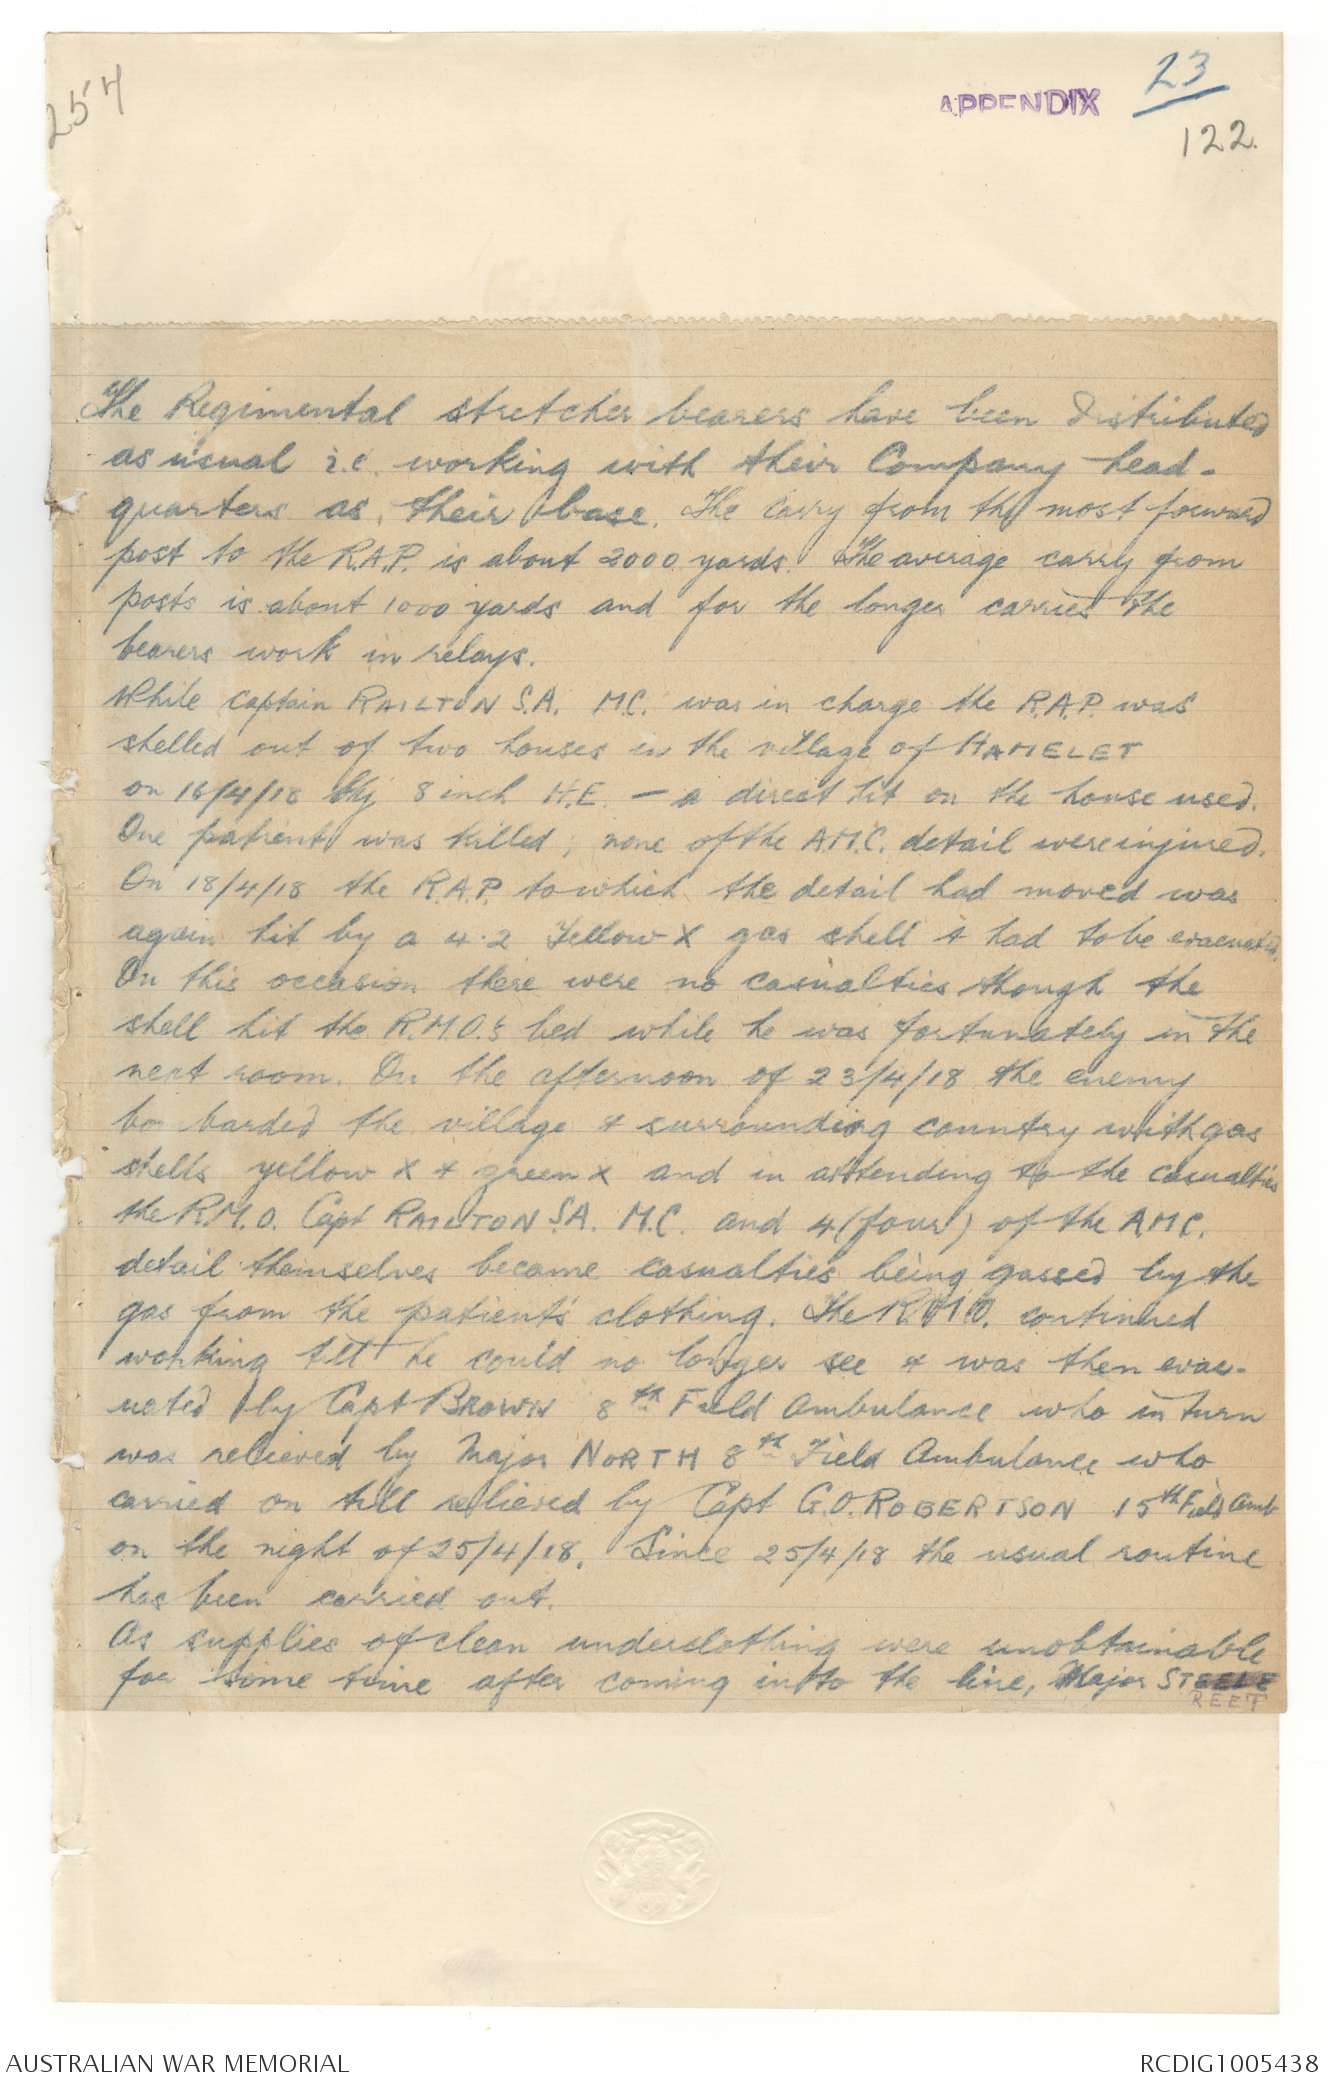 257
APPENDIX 23
122.
The Regimental stretcher bearers have been distributed
as usual i.e. working with their Company head-
quarters as their base. The carry from the most forward
post to the R.A.P. is about 2000 yards. The average carry from
posts is about 1000 yards and for the longer carries the
bearers work in relays.
While Captain RAILTON S.A. M.C. was in charge the R.A.P. was
shelled out of two houses in the village of HAMELET
on 16/4/18 by 8 inch H.E. — a direct hit on the house used.
One patient was killed, none of the A.M.C. detail were injured.
On 18/4/18 the R.A.P. to which the detail had moved was
again hit by a 4.2 Yellow X gas shell & had to be evacuated.
On this occasion there were no casualties though the
shell hit the R.M.O.'s bed while he was fortunately in the
next room. On the afternoon of 23/4/18 the enemy
bo barded the village & surrounding country with gas
shells yellow X & green X and in attending to the casualties
the R.M.O. Capt RAILTON S.A. M.C. and 4 (four) of the A.M.C.
detail themselves became casualties being gassed by the
gas from the patient's clothing. The R.M.O. continued
working till he could no longer see & was then evac-
uated by Capt BROWN 8th Field Ambulance who in turn
was relieved by Major NORTH 8th Field Ambulance who
carried on till relieved by Capt G.O. ROBERTSON 15th Field Amb
on the night of 25/4/18. Since 25/4/18 the usual routine
has been carried out.
As supplies of clean underclothing were unobtainable
for some time after coming into the line, Major STEELE
REET
AUSTRALIAN WAR MEMORIAL
RCDIG1005438